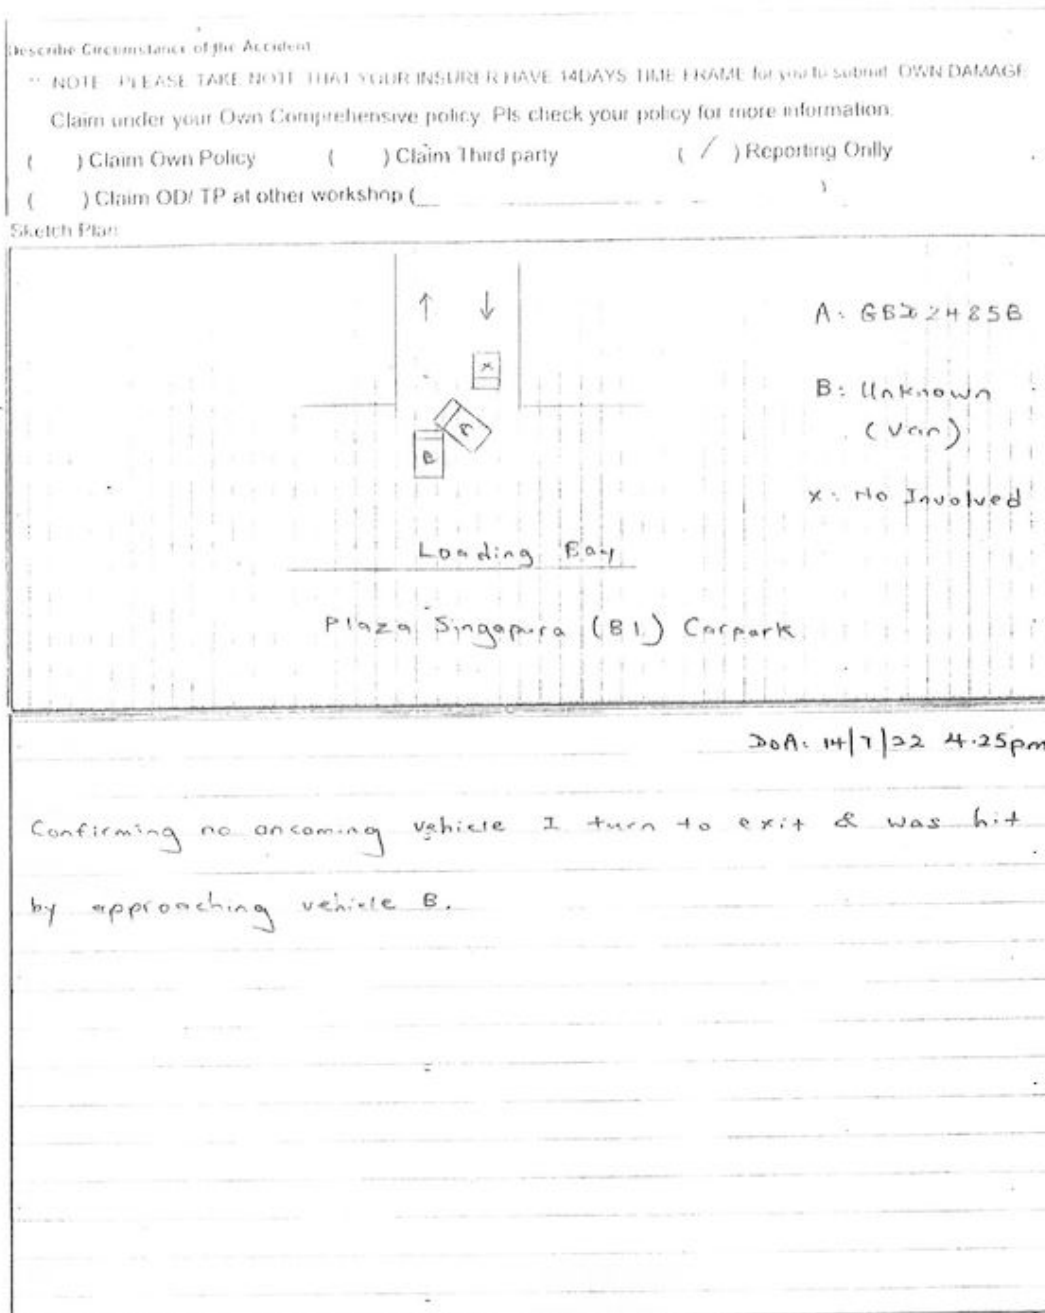 Describe Circumstance of the Accident
** NOTE : PLEASE TAKE NOTE THAT YOUR INSURER HAVE 14DAYS TIME FRAME for you to submit OWN DAMAGE
Claim under your Own Comprehensive policy. Pls check your policy for more information.
( ) Claim Own Policy ( ) Claim Third party ( / ) Reporting Onlly
( ) Claim OD/ TP at other workshop (__ )
Sketch Plan
↑ ↓
A: 2485B
x
B: Unknown
(Van)
A
B
x: No Involved
Loading Bay
Plaza Singapura (B1) Carpark
DoA: 14/7/22 4.25pm
Confirming no oncoming vehicle I turn to exit & was hit
by approaching vehicle B.